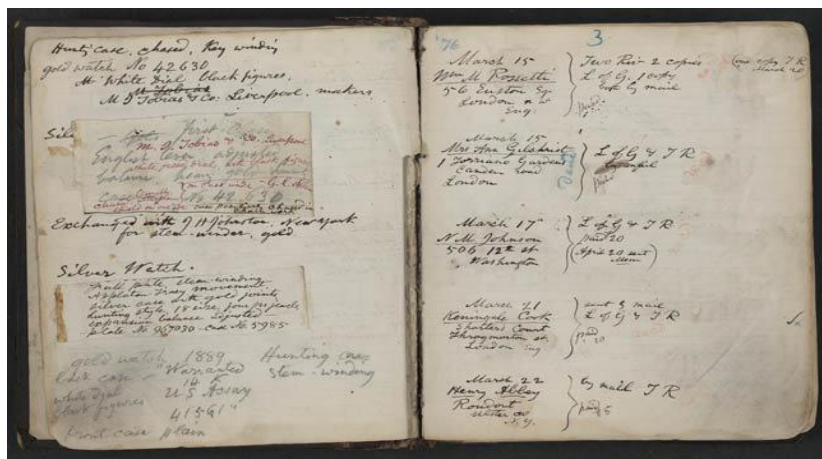 Hunting case, chased, Key winding
gold watch No 42630
White Dial black figures,
M I Tobias & Co: Liverpool, makers
first
M. I Tobias & Co. Liverpool
English lever adjusted
No 42 30
Exchanged with J H Johnston, New York
for stem-winder, gold
Silver Watch.
Full plate, stem-winding
Appleton Tracy movement
silver case with gold joints
hunting style, 18 size, four pr jewels
expansion balance adjusted
plate No 967030 - case No 5985
gold watch 1889 Hunting case
back case - "Warranted stem-winding
14 K
white dial U S Assay
black figures 41561"
front case plain
'76 3
March 15
Wm M Rossetti
56 Euston Sq
London n w
Eng.
Two Riv 2 copies
L of G. 1 copy
by mail
paid
(one copy T R
March 20)
March 15
Mrs Ann Gilchrist
1 Torriano Gardens
Camden road
London
L of G & T R
paid
March 17
N M Johnson
506 12th st
Washington
L of G & T R
paid 20
(April 20 sent
Mem)
March 21
Keningale Cook
Shorters Court
Throgmorton st
London Eng
sent by mail
L of G & T R
pd 20
March 22
Henry Abbey
Rondout
Ulster co
N.Y.
by mail T R
paid 5